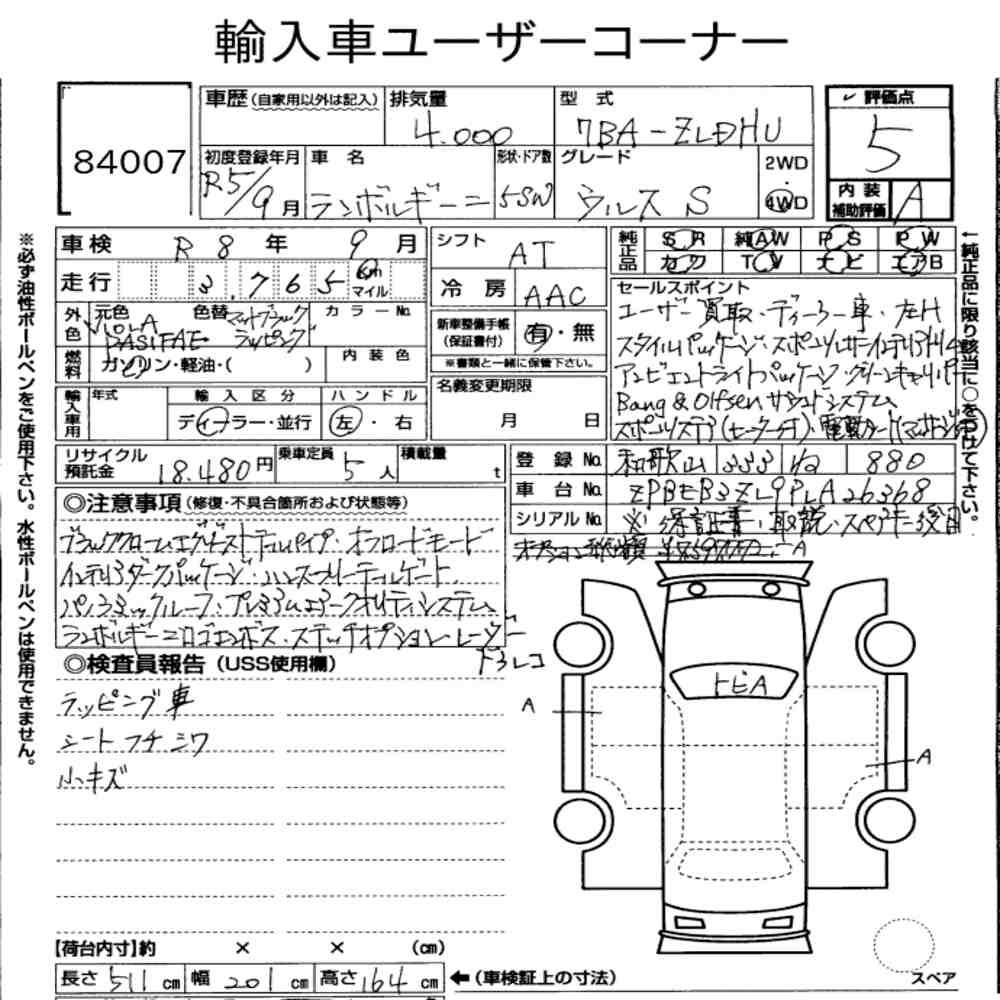 輸入車ユーザーコーナー
84007
車歴 (自家用以外は記入)
排気量 4.000
型式 7BA-ZLDHU
初度登録年月 R5/9月
車名 ランボルギーニ
形状・ドア数 5SW
グレード ウルス S
2WD
4WD
評価点 5
内装補助評価 A
車検 R 8 年 9 月
走行 3.765 km マイル
外色 元色 VIOLA PASIFAE
色替 マットブラック ラッピング
カラーNo.
燃料 ガソリン・軽油・( )
内装色
輸入車用 年式
輸入区分 ディーラー・並行
ハンドル 左・右
シフト AT
冷房 AAC
新車整備手帳 (保証書付) 有・無
※書類と一緒に保管下さい。
名義変更期限 月 日
純正品 SR 純AW PS PW
カワ TV ナビ エアB
セールスポイント
ユーザー買取・ディーラー車・左H
アンビエントライトパッケージ・グリーンキャリパー
Bang & Olfsen サウンドシステム
リサイクル預託金 18.480円
乗車定員 5人
積載量 t
登録No. 和歌山 333 ね 880
車台No. ZPBEB3ZL9PLA26368
シリアルNo. ※保証書・取説・スペアキー後日
◎注意事項 (修復・不具合箇所および状態等)
ブラッククロームエグゾーストテールパイプ・オフロードモード
インテリアダークパッケージ・ハンズフリーテールゲート
パノラミックルーフ・プレミアムエアークオリティシステム
ランボルギーニロゴエンボス・ステッチオプション・レーダー
ドラレコ
◎検査員報告 (USS使用欄)
ラッピング車
シートフチシワ
小キズ
トビA
A
A
【荷台内寸】約 × × (cm)
長さ 511 cm 幅 201 cm 高さ 164 cm ←(車検証上の寸法)
スペア
※必ず油性ボールペンをご使用下さい。水性ボールペンは使用できません。
←純正品に限り該当に○をつけて下さい。